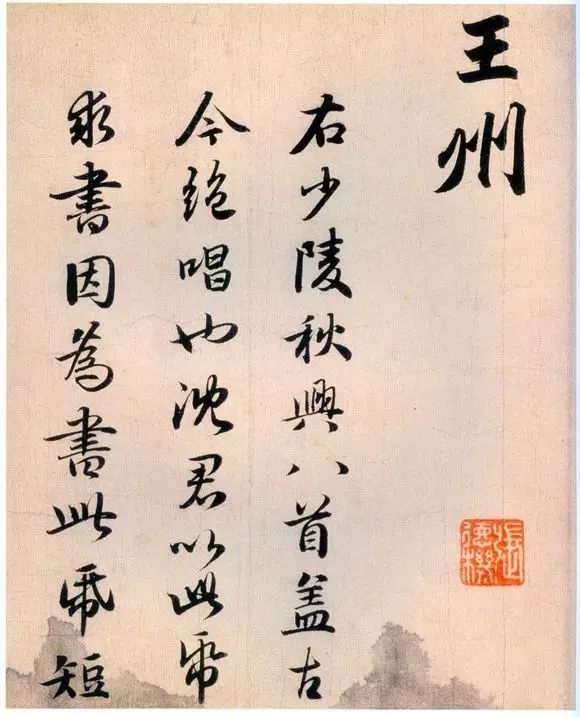 王州
右少陵秋興八首盖古
今絶唱也沈君以此帋
求書因為書此帋短